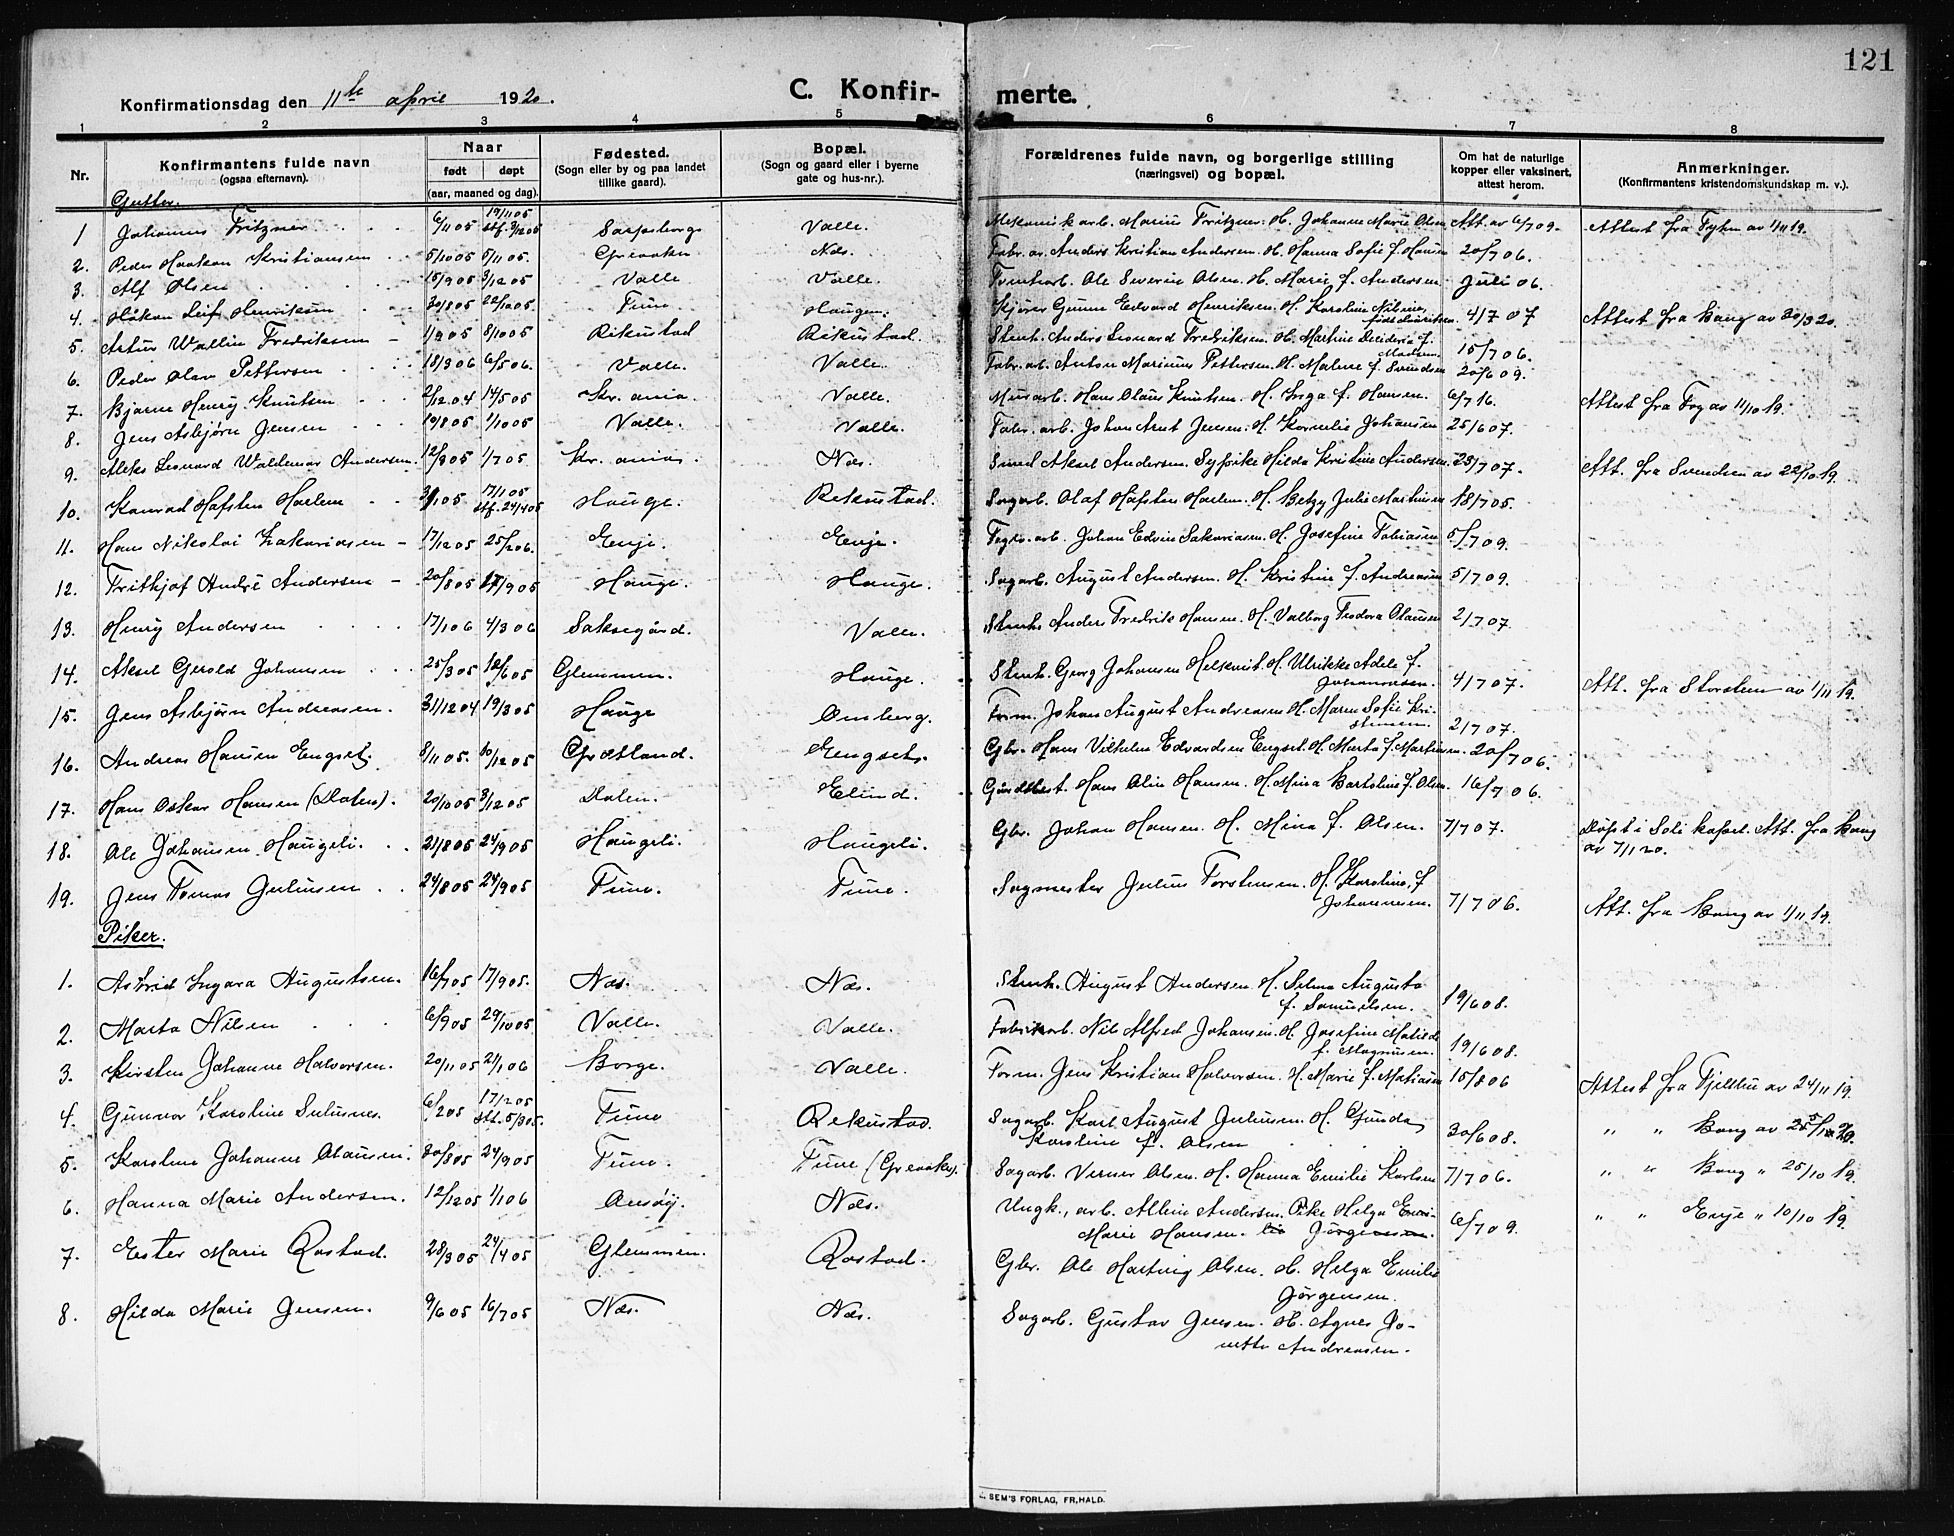 121
Konfirmationsdag den 11te april 1920.
C. Konfir- merte.
1 2 3 4 5 6 7 8
Nr.
Konfirmantens fulde navn
(ogsaa efternavn).
Naar
født døpt
(aar, maaned og dag).
Fødested.
(Sogn eller by og paa landet
tillike gaard).
Bopæl.
(Sogn og gaard eller i byerne
gate og hus-nr.).
Forældrenes fulde navn, og borgerlige stilling
(næringsvei) og bopæl.
Om hat de naturlige
kopper eller vaksinert,
attest herom.
Anmerkninger.
(Konfirmantens kristendomskundskap m. v.).
Gutter.
1 Johannes Fritzner 6/11 05 19/11 05 Sarpsborg Valle. Mekanisk arb. Marius Fritzner. H. Johanne Marie Olsen Att. av 6/7 09. Attest fra av 1/11 19.
2. Peder Haakon Kristiansen 5/10 05 5/11 05. Greaaker Næs. Fabr. ar. Anders Kristian Andersen. H. Hanna Sofie f. Hansen 20/7 06.
3. Alf Olsen 15/9 05 3/12 05 Valle Valle. Ole Severin Olsen. H. Marie f. Andersen Juli 06.
4. Håkon Leif Henriksen 30/8 05 22/10 05. Tune Haugen. Kjører Gunne Edvard Henriksen. H. Karoline Nilsine
født 4/7 07 Attest fra Bang av 30/3 20.
5. Artur Wallin Fredriksen 1/9 05 8/10 05 Rikustad Rikustad. Stenh. Anders Leonard Fredriksen. H. Martine f.
Madsen. 15/7 06.
6. Peder Olav Pettersen 18/3 06 6/5 06. Valle. Valle. Fabr. arb. Anton Marinus Pettersen. H. Malene f. Svendsen 20/6 09.
7. Bjarne Henry Knutsen 2/12 04 14/5 05 Kr. ania. Valle. Murarb. Hans Olaus Knutsen. H. Inga f. Hansen. 6/7 16. Attest fra av 11/10 19.
8. Jens Asbjørn Jensen 19/8 05 1/10 05 Valle. Valle. Fabr. arb. Johan Arnt Jensen. H. Kornelie Johansen 25/6 07.
9. Aleks Leonard Waldemar Andersen. 12/9 05 1/7 05 Kr. ania. Næs. Smed Aksel Andersen. Sypike Hilda Kristine Andersen. 23/7 07. Att. fra Svendsen av 22/10 19.
10. Konrad Hafsten Harlem 05 17/1 05 Hauge. Rekustad. Sagarb. Olaf Hafsten Harlem. H. Betzy Julie Martinsen 18/7 05.
11. Hans Nikolai Zakariasen 17/12 05 25/2 06. Evje. Evje. Teglv. arb. Johan Edvin Sakariasen. H. Josefine Tobiasen 5/7 09.
12. Frithjof André Andersen 20/8 05 17/9 05 Hauge. Hauge. Sagarb. August Andersen. H. Kristine f. Andreasen 5/7 09.
13. Henry Andersen 17/1 06 4/3 06 Saksegård. Valle. Stenh. Anders Fredrik Hansen. H. Valborg Teodora Olausen 2/7 07.
14. Aksel Gerold Johansen 25/3 05 12/6 05 Glemmen. Hauge. Stenh. Georg Johansen Helkvist. H. Ulrikke Adele f.
Johannesen. 4/7 07. Att. fra Storsten av 1/11 19.
15. Jens Asbjørn Andreasen. 31/12 04 19/3 05 Hauge Omberg. Form. Johan August Andreasen. H. Maren Sofie Kri-
stensen 2/7 07.
16. Andreas Hansen Engset. 8/11 05. 10/12 05 Grætland. Engset. Gbr. Hans Vilhelm Edvardsen Engset. H. Marta f. Martinsen. 20/7 06.
17. Hans Oskar Hansen (Dalen). 20/10 05 3/12 05 Dalen. Elind. Hans Olin Hansen. H. Mina Bartoline f. Olsen. 16/7 06.
18. Ole Johansen Haugeli. 21/8 05 24/9 05 Haugeli. Haugeli. Gbr. Johan Hansen. H. Mina f. Olsen. 7/7 07. Døpt i Soli kapel. Att. fra Bang
av 7/1 20.
19. Jens Tomas Juliussen 24/8 05 24/9 05 Tune. Tune. Sagmester Julius Torstensen. H. Karoline f.
Johannesen. 7/7 06. Att. fra Bang av 1/11 19.
Piker.
1. Astrid Ingara Augustsen. 16/7 05 17/9 05. Næs. Næs. Stenh. August Andersen. H. Selma Augusta
f. Samuelsen. 19/6 08.
2. Marta Nilsen 6/9 05 29/10 05. Valle. Valle. Fabrikarb. Nils Alfred Johansen. H. Josefine Matilde
f. Magnusen. 19/6 08.
3. Kirsten Johanne Halvorsen. 20/11 05 21/1 06 Borge. Valle. Form. Jens Kristian Halvorsen. H. Marie f. Matiasen 15/8 06 Attest fra Fjellhu av 24/11 19.
4. Gunvor Karoline 6/2 05 17/2 05 5/3 05. Tune Rekustad. Sagarb. Karl August Juliusen. H. Gunda
Karoline f. Olsen 30/6 08. " " Bang av
5. Karoline Johanne Olausen. 20/8 05 24/9 05 Tune. Tune (Greaaker). Sagarb. Verner Olsen. H. Hanna Emilie Karlsen 7/7 06. " " Bang " 25/10 19.
6. Hanna Marie Andersen. 12/12 05 1/1 06 Næs. Ungk., arb. Andersen. Pike Helga
Marie Hansen. 6/7 09. " " Evje " 10/10 19.
7. Ester Marie Rostad. 28/3 05 24/4 05 Glemmen. Rostad. Gbr. Ole Hartvig Olsen. H. Helga Emilie
Jörgensen.
8. Hilda Marie Jensen. 9/6 05 16/7 05 Næs. Næs. Sagarb. Gustav Jensen. H. Agnes Jo-
nette Andreasen.
SEM'S FORLAG, FR.HALD.